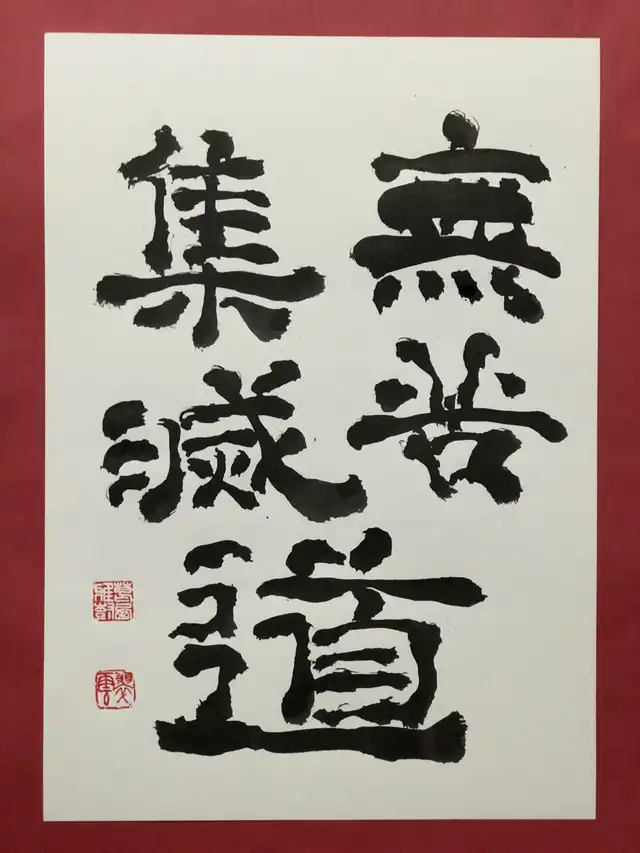 無苦
集滅道